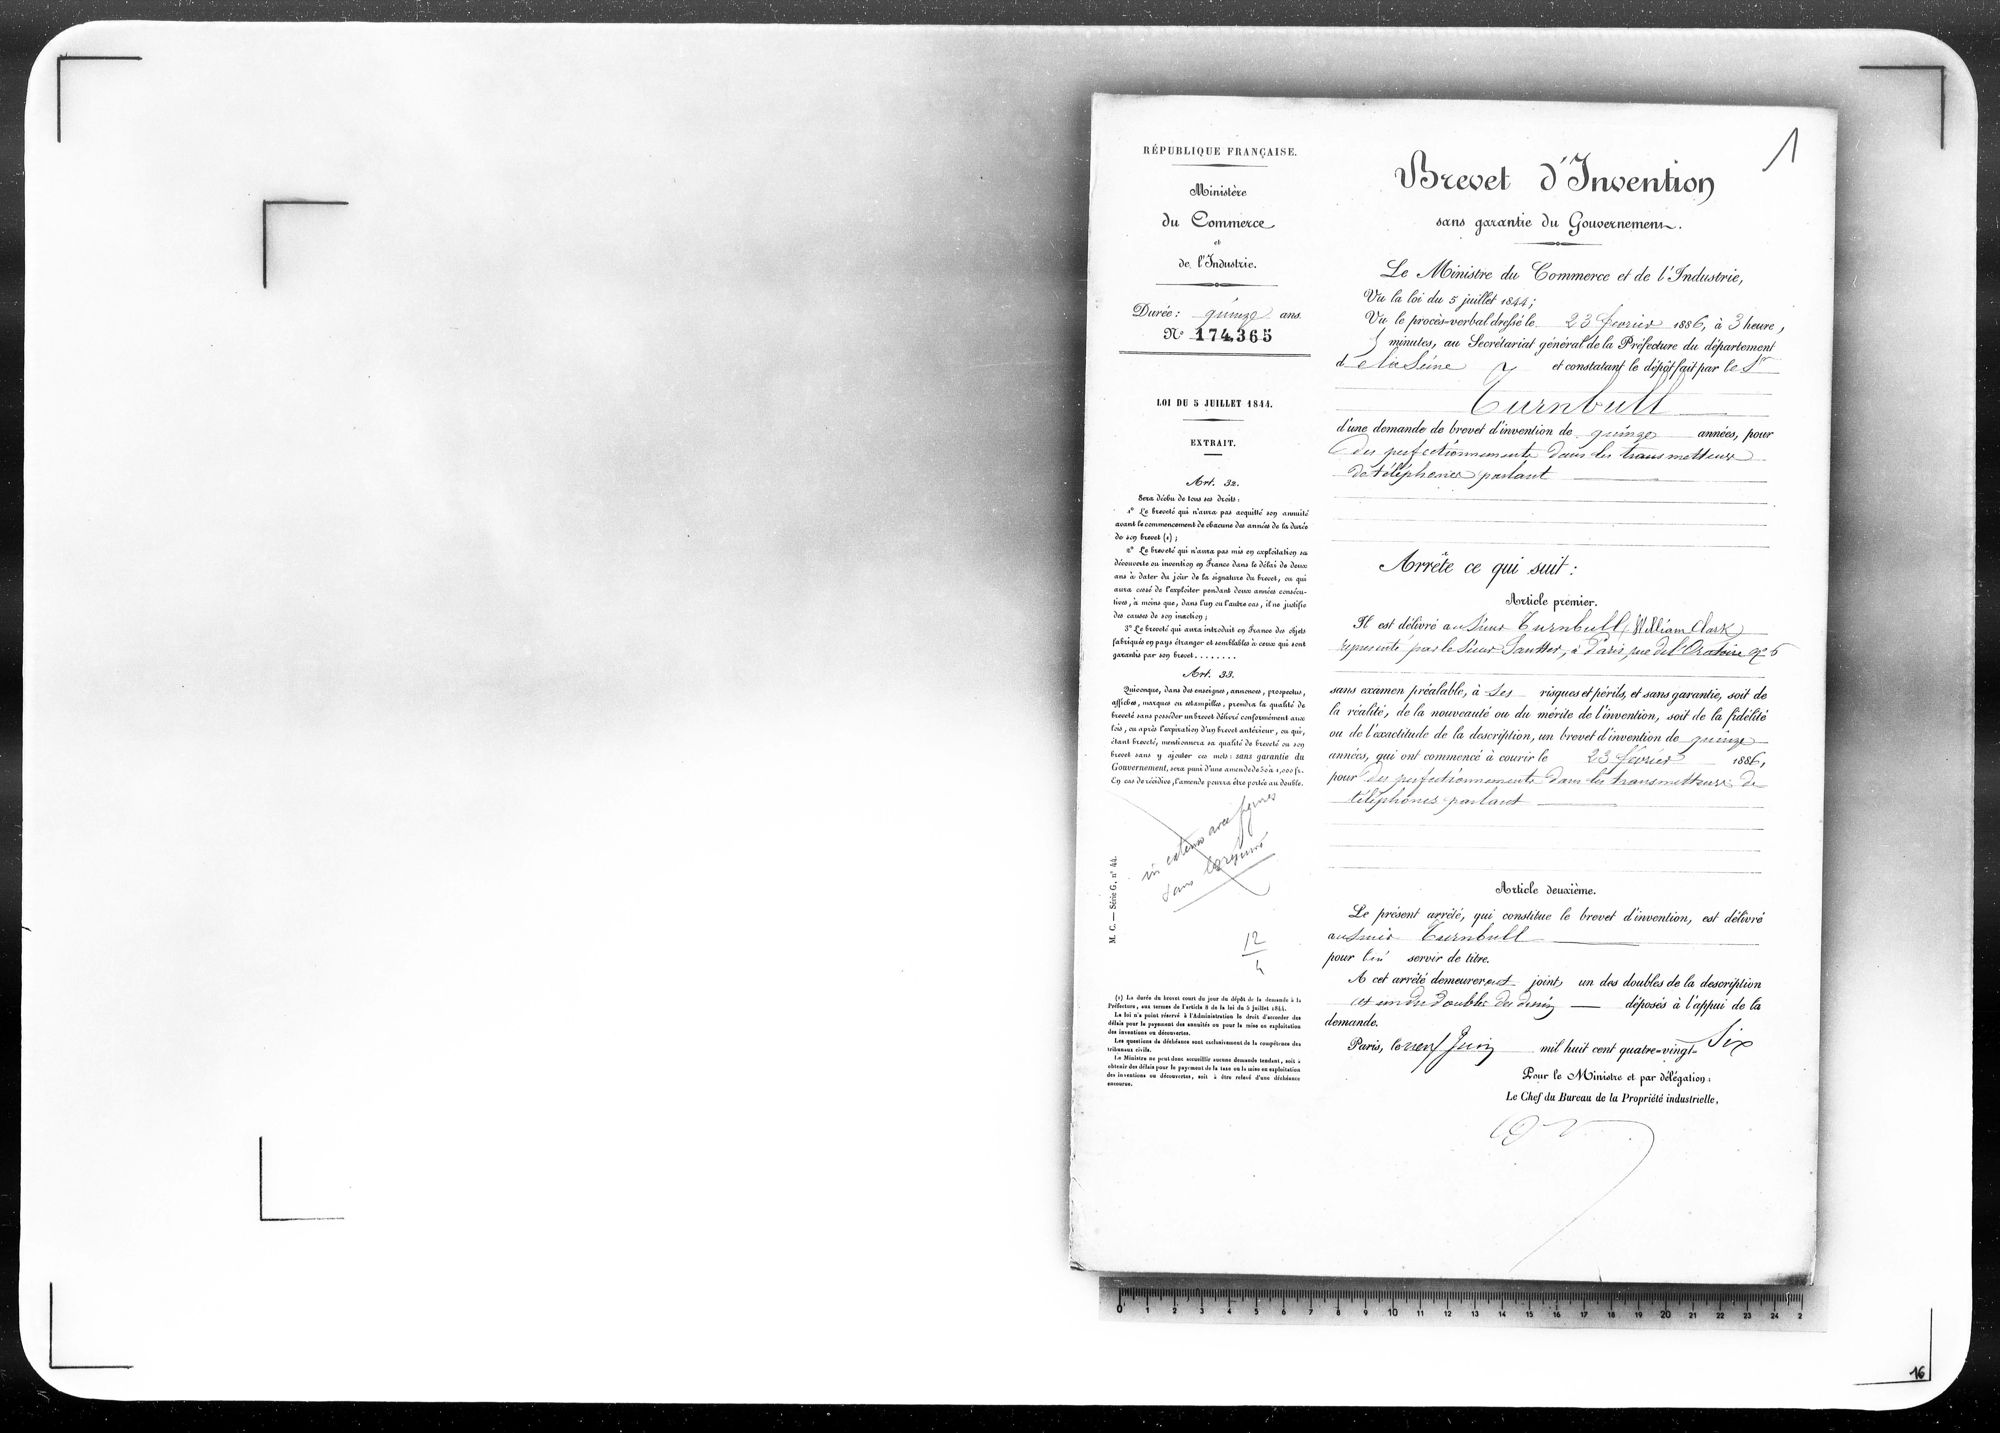 1
RÉPUBLIQUE FRANÇAISE.
Ministère
du Commerce
et
de l'Industrie.
Durée: quinze ans.
N° 174,365
LOI DU 5 JUILLET 1844.
EXTRAIT.
Art. 32.
Sera déchu de tous ses droits:
1° Le breveté qui n'aura pas acquitté son annuité
avant le commencement de chacune des années de la durée
de son brevet (1);
2° Le breveté qui n'aura pas mis en exploitation sa
découverte ou invention en France dans le délai de deux
ans à dater du jour de la signature du brevet, ou qui
aura cessé de l'exploiter pendant deux années consécu-
tives, à moins que, dans l'un ou l'autre cas, il ne justifie
des causes de son inaction;
3° Le breveté qui aura introduit en France des objets
fabriqués en pays étranger et semblables à ceux qui sont
garantis par son brevet........
Art. 33.
Quiconque, dans des enseignes, annonces, prospectus,
affiches, marques ou estampilles, prendra la qualité de
breveté sans posséder un brevet délivré conformément aux
lois, ou après l'expiration d'un brevet antérieur, ou qui,
étant breveté, mentionnera sa qualité de breveté ou son
brevet sans y ajouter ces mots: sans garantie du
Gouvernement, sera puni d'une amende de 50 à 1,000 fr.
En cas de récidive, l'amende pourra être portée au double.
in extenso avec figures
sans
12
4
M. C. — Série G, n° 44.
(1) La durée du brevet court du jour du dépôt de la demande à la
Préfecture, aux termes de l'article 8 de la loi du 5 juillet 1844.
La loi n'a point réservé à l'Administration le droit d'accorder des
délais pour le payement des annuités ou pour la mise en exploitation
des inventions ou découvertes.
Les questions de déchéance sont exclusivement de la compétence des
tribunaux civils.
Le Ministre ne peut donc accueillir aucune demande tendant, soit à
obtenir des délais pour le payement de la taxe ou la mise en exploitation
des inventions ou découvertes, soit à être relevé d'une déchéance
encourue.
Brevet d'Invention
sans garantie du Gouvernement.
Le Ministre du Commerce et de l'Industrie,
Vu la loi du 5 juillet 1844;
Vu le procès-verbal dressé le 23 février 1886, à 3 heure,
minutes, au Secrétariat général de la Préfecture du département
de la Seine et constatant le dépôt fait par le Sr
Turnbull
d'une demande de brevet d'invention de quinze années, pour
des perfectionnements dans les transmetteurs
de téléphones parlant
Arrête ce qui suit:
Article premier.
Il est délivré au Sieur Turnbull (William Clark)
représenté par le Sieur Sautter, à Paris, rue de l'Oratoire n° 6
sans examen préalable, à ses risques et périls, et sans garantie, soit de
la réalité, de la nouveauté ou du mérite de l'invention, soit de la fidélité
ou de l'exactitude de la description, un brevet d'invention de quinze
années, qui ont commencé à courir le 23 février 1886,
pour des perfectionnements dans les transmetteurs de
téléphones parlant
Article deuxième.
Le présent arrêté, qui constitue le brevet d'invention, est délivré
au Sieur Turnbull
pour lui servir de titre.
A cet arrêté demeureront joints un des doubles de la description
et un des doubles des dessins déposés à l'appui de la
demande.
Paris, le neuf Juin mil huit cent quatre-vingt-Six
Pour le Ministre et par délégation:
Le Chef du Bureau de la Propriété industrielle,
0 1 2 3 4 5 6 7 8 9 10 11 12 13 14 15 16 17 18 19 20 21 22 23 24 2
16